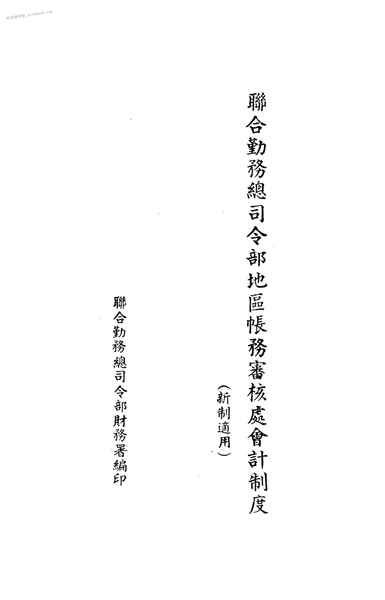 聯合勤務總司令部地區帳務審核處會計制度
(新制適用)
聯合勤務總司令部財務署編印